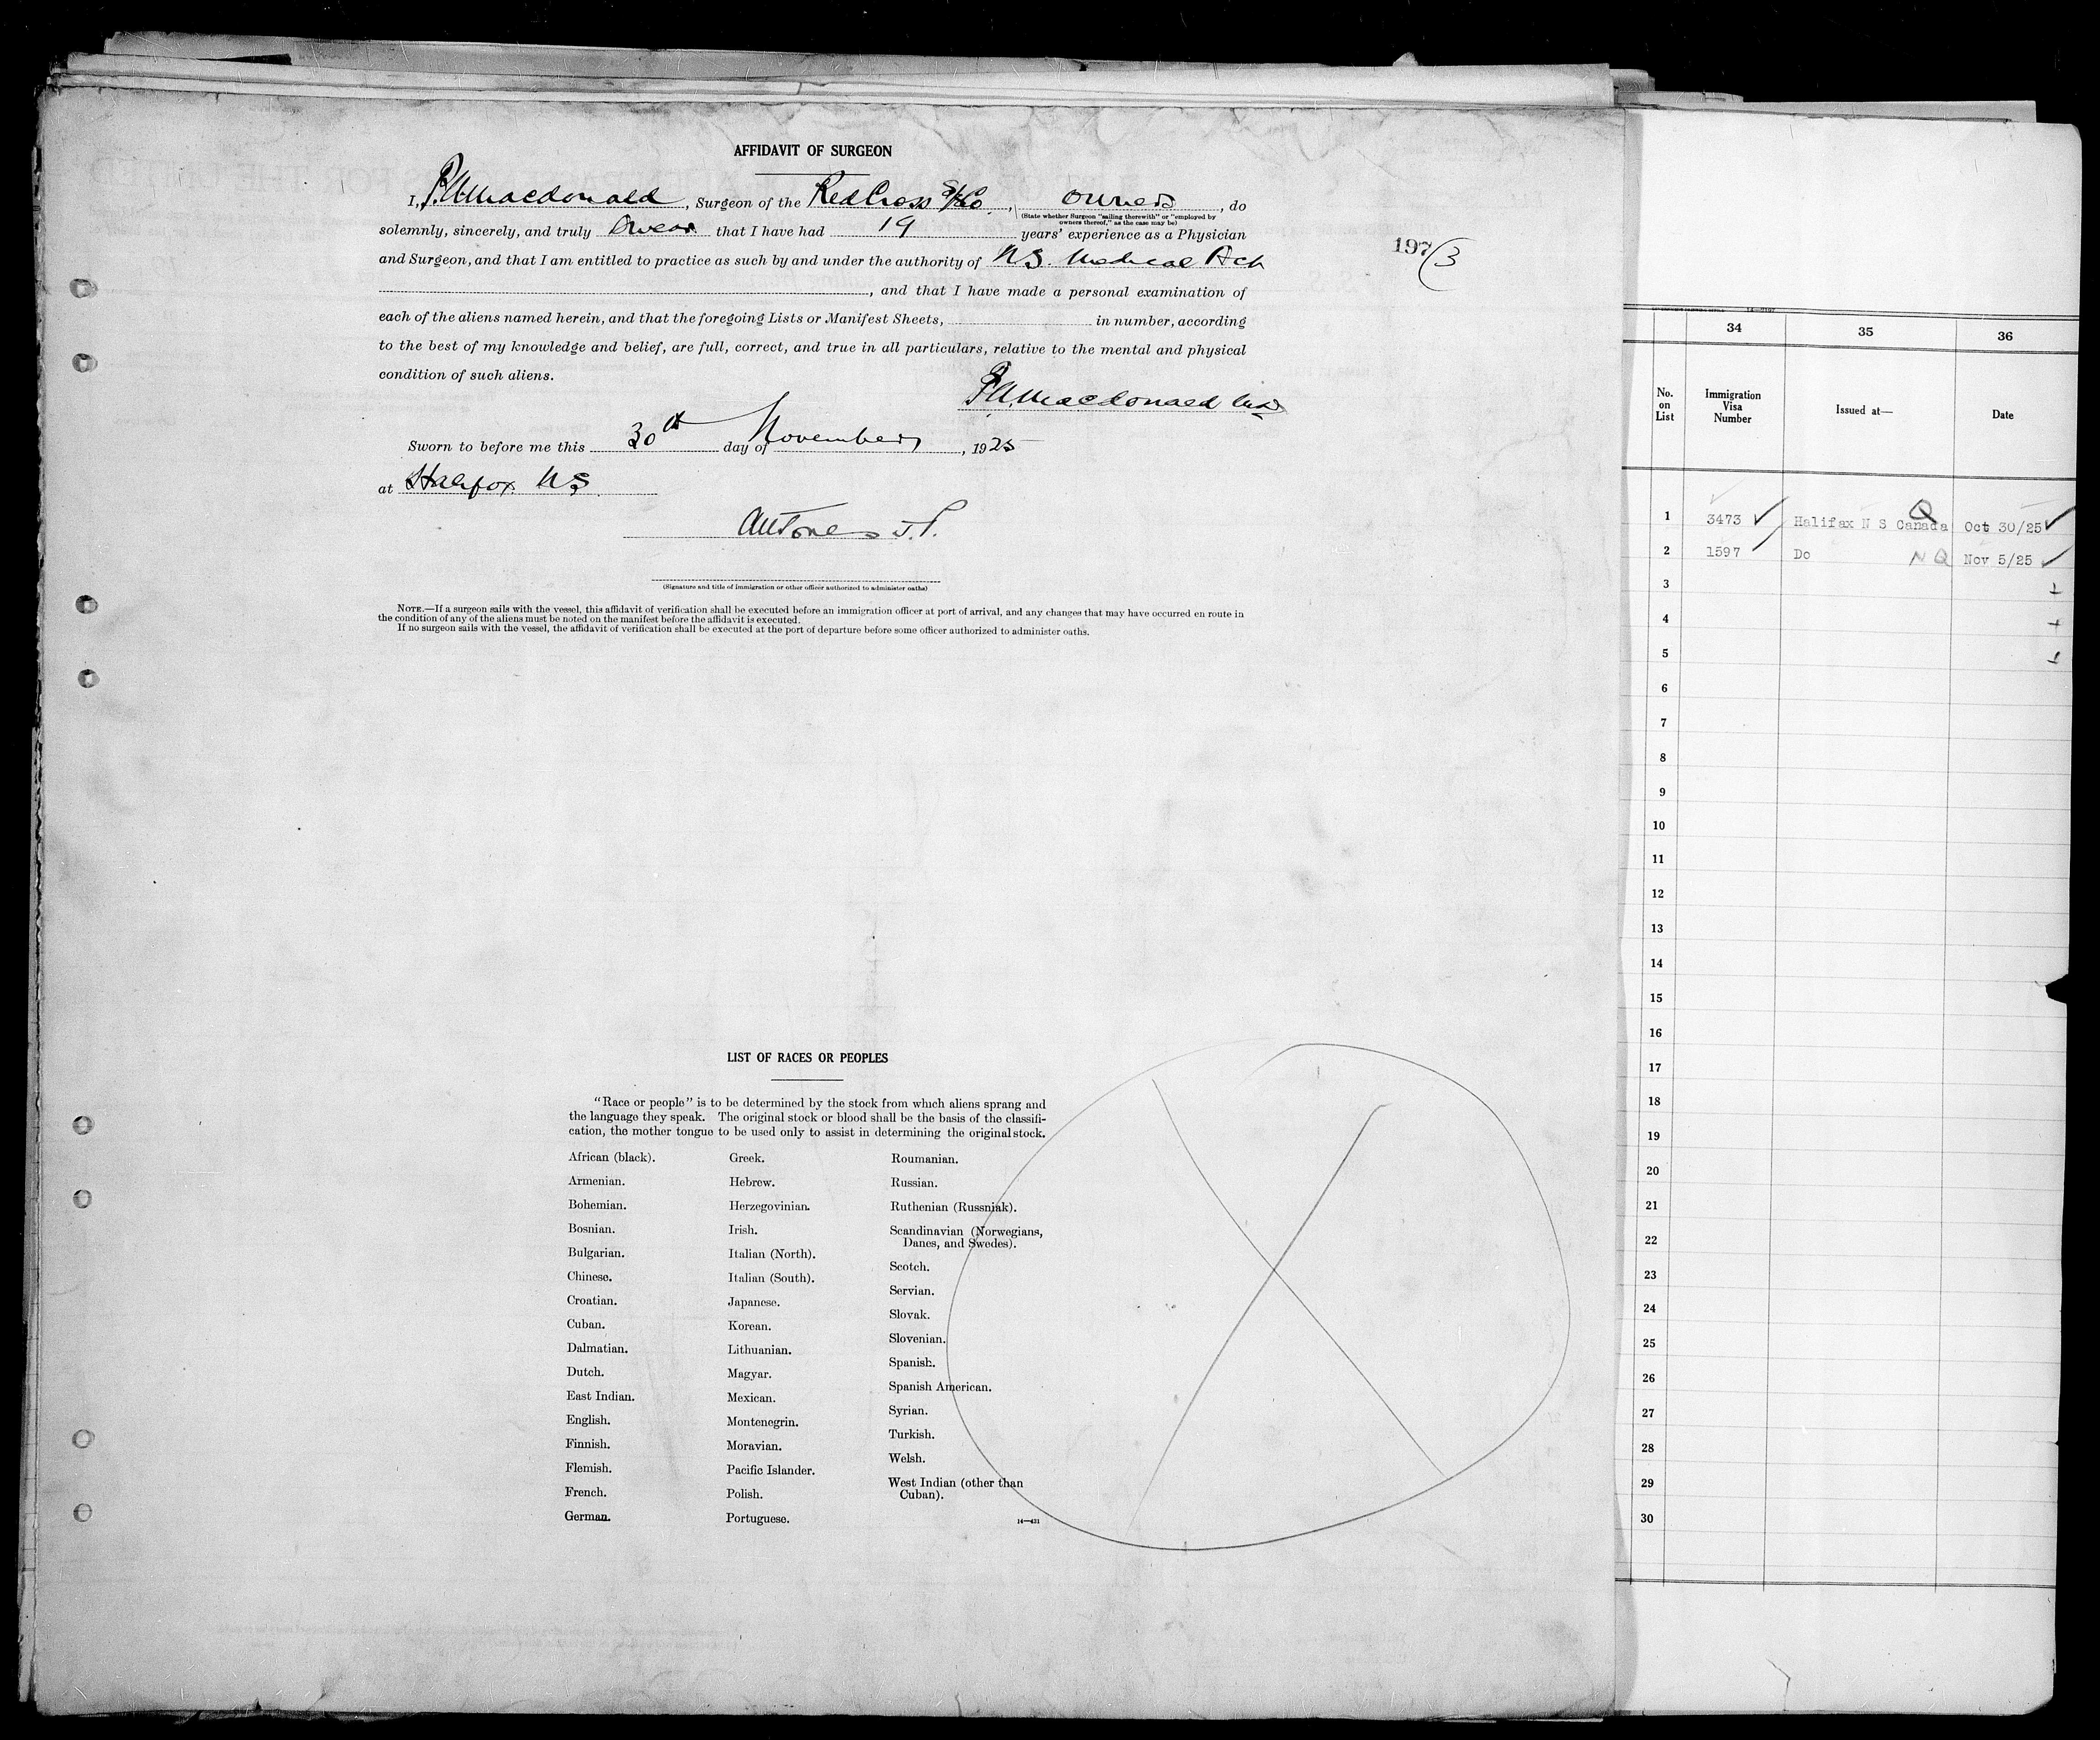 AFFIDAVIT OF SURGEON
I, P.A. Macdonald, Surgeon of the Red Cross S/S Co., owners, do
(State whether Surgeon "sailing therewith" or "employed by
owners thereof," as the case may be)
solemnly, sincerely, and truly swear that I have had 19 years' experience as a Physician
and Surgeon, and that I am entitled to practice as such by and under the authority of N.S. Medical Act
, and that I have made a personal examination of
each of the aliens named herein, and that the foregoing Lists or Manifest Sheets, in number, according
to the best of my knowledge and belief, are full, correct, and true in all particulars, relative to the mental and physical
condition of such aliens.
Macdonald
Sworn to before me this 30th day of November, 1925
at Halifax NS
Jones J.P.
(Signature and title of immigration or other officer authorized to administer oaths)
NOTE.—If a surgeon sails with the vessel, this affidavit of verification shall be executed before an immigration officer at port of arrival, and any changes that may have occurred en route in
the condition of any of the aliens must be noted on the manifest before the affidavit is executed.
If no surgeon sails with the vessel, the affidavit of verification shall be executed at the port of departure before some officer authorized to administer oaths.
LIST OF RACES OR PEOPLES
"Race or people" is to be determined by the stock from which aliens sprang and
the language they speak. The original stock or blood shall be the basis of the classifi-
cation, the mother tongue to be used only to assist in determining the original stock.
African (black).
Armenian.
Bohemian.
Bosnian.
Bulgarian.
Chinese.
Croatian.
Cuban.
Dalmatian.
Dutch.
East Indian.
English.
Finnish.
Flemish.
French.
German.
Greek.
Hebrew.
Herzegovinian.
Irish.
Italian (North).
Italian (South).
Japanese.
Korean.
Lithuanian.
Magyar.
Mexican.
Montenegrin.
Moravian.
Pacific Islander.
Polish.
Portuguese.
Roumanian.
Russian.
Ruthenian (Russniak).
Scandinavian (Norwegians,
Danes, and Swedes).
Scotch.
Servian.
Slovak.
Slovenian.
Spanish.
Spanish American.
Syrian.
Turkish.
Welsh.
West Indian (other than
Cuban).
14—431
197/3
34 35 36
No.
on
List
Immigration
Visa
Number
Issued at—
Date
1 3473 Halifax N S Canada Q Oct 30/25
2 1597 Do NQ Nov 5/25
3
4
5
6
7
8
9
10
11
12
13
14
15
16
17
18
19
20
21
22
23
24
25
26
27
28
29
30